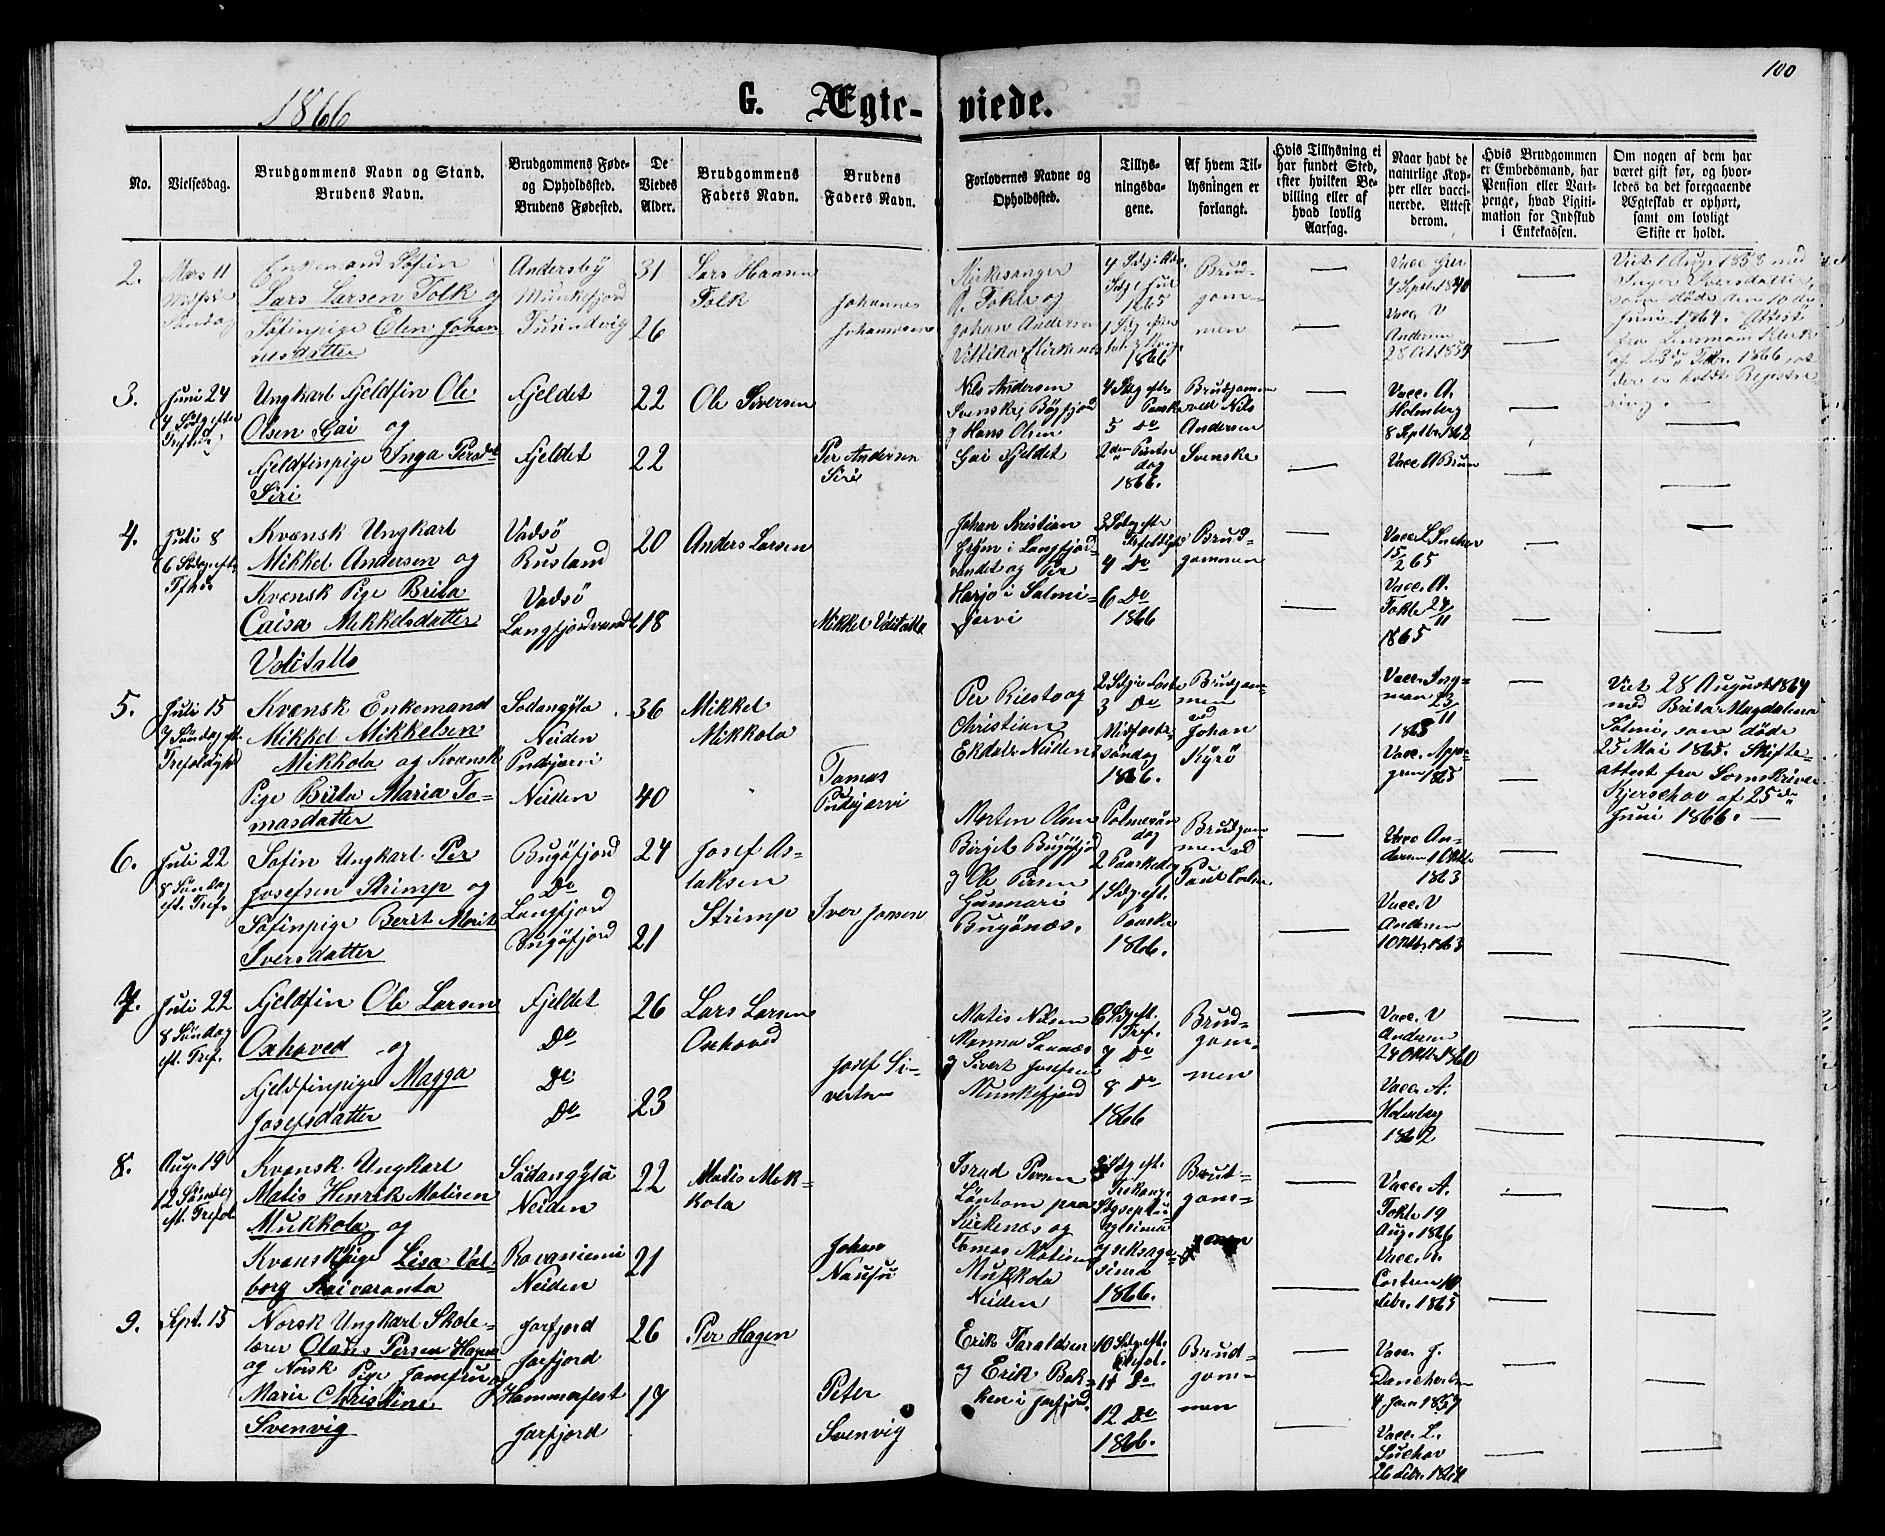 100
1866
G. Ægte-viede.
No.
Vielsesdag.
Brudgommens Navn og Stand.
Brudens Navn.
Brudgommens Føde-
og Opholdssted.
Brudens Fødested.
De
Viedes
Alder.
Brudgommens
Faders Navn.
Brudens
Faders Navn.
Forlovernes Navne og
Opholdssted.
Tillys-
ningsda-
gene.
Af hvem Til-
lysningen er
forlangt.
Hvis Tillysning ei
har fundet Sted,
efter hvilken Be-
villing eller af
hvad lovlig
Aarsag.
Naar havt de
naturlige Kop-
per eller vacci-
nerede. Attest
derom.
Hvis Brudgommen
er Embedsmand, har
Pension eller Vart-
penge, hvad Ligiti-
mation for Indskud
i Enkekassen.
Om nogen af dem har
været gift før, og hvor-
ledes da det foregaaende
Ægteskab er ophørt,
samt om lovligt
Skifte er holdt.
2.
Mars 11
Enkemand Søfin
Lars Larsen Folk og
Søfinpige Elen Johan-
nesdatter
Andersby
Munkefjord
Tusindvig
31
26
Lars Hansen
Folk
Johannes
Johannesen
Kirkesanger
A. Fokle og
Johan Andersen
1865
1866
Brud-
gom-
men
Vacc.
7 Septbr 1840
Vacc. V
Andersen
28 Oct 1859
Viet 1 Aug. 1858 med
Inger Iversdatter,
som døde den 10de
Juni 1864. Attest
fra Lensmann Klerk
af 23de Febr. 1866, at
der er holdt Registre-
ring.
3.
Juni 24
4 Søndg efter
Trefold
Ungkarl Fjeldfin Ole
Olsen Gai og
Fjeldfinpige Inga Persdat
Siri
Fjeldet
Fjeldet
22
22
Ole Siversen
Per Andersen
Siri
Nils Andersen
Svenske, Bøgfjord
og Hans Olsen
Gai Fjeldet
4 Sdg eftr
Paaske
5 Do
2den Pintse
dag
1866.
Brudgommen
ved Nils
Andersen
Svenske
Vacc. A.
Holmberg
8 Septbr. 1862
Vacc. A Brun
4.
Juli 8
6 Sdg eft.
Kvænsk Ungkarl
Mikkel Andersen og
Kvænsk Pige Brita
Caisa Mikkelsdatter
Volitallo
Vadsø
Rusland
Vadsø
Langfjordvandt
20
18
Anders Larsen
Mikkel Volitallo
Johan Kristian
Grym i Langfjord-
vandet og Per
Harjo i Salmi-
jærvi
3 Sdg eftr
Trefoldigh
4 Do
6 Do
1866
Brud-
gommen
Vacc. L. Suchov
15/2 65
Vacc. A.
Fokle 24/11
1865
5.
Juli 15
7 Søndag eft.
Trefoldigh
Kvænsk Enkemand
Mikkel Mikkelsen
Mikkola og Kvænsk
Pige Brita Maria To-
masdatter
Sodangyla
Neiden
Pudsjærvi
Neiden
36
40
Mikkel
Mikkola
Tomas
Pudsjærvi
Per Riesto og
Christian
Ekdal Neiden
2 Sdg i Faste
3 Do
Midfaste-
søndag
1866.
Brudgom-
men
ved
Johan
Kyrö
Vacc. Ing-
man 23/11
1865
Vacc. App-
gren 1865
Viet 28 August 1864
med Brita Magdalena
Salmi, som døde
25 Mai 1865. Skifte-
attest fra Sorenskriver
Kjerschov af 25de
Juni 1866.
6.
Juli 22
8 Søndag
eft. Tref.
Søfin Ungkarl Per
Josefsen Strimp og
Søfinpige Berit Marit
Iversdatter
Bugøfjord
Do
Langfjord
Bugøfjord
24
21
Josef As-
laksen
Strimp
Iver Jonsen
Morten Olsen
Birget Bugøfjord
og Ole Persen
Gunnari
Bugønæs.
Palmesøn
dag
2 Paaskedag
1 Sdg eft.
Paaske
1866.
Brudgom
men ved
Paul
Vacc. An-
dersen 10 Okt.
1863
Vacc. V
Andersen
10 Oktbr. 1863
7.
Juli 22
8 Søndag
eft. Tref.
Fjeldfin Ole Larsen
Oxhoved og
Fjeldfinpige Magga
Josefsdatter
Fjeldet
Do
Do
Do
26
23
Lars Larsen
Oxhoved
Josef Si-
vertsen
Matis Nilsen
Manna Sandnæs
og Sivert Josefsen
Munkefjord
6 Sdg eft.
Tref.
7 Do
8 Do
1866
Brud-
gom-
men
Vacc. V
Andersen
24 Oktbr. 1860
Vacc. A.
Holmberg
1862
8.
Aug. 19
12 Søndag
eft. Trefol
Kvænsk Ungkarl
Matis Henrik Matisen
Mukkola og
Kvænsk Pige Lisa Val-
borg Kaivaranta
Sådangyla
Neiden
Rovaniemi
Neiden
22
21
Matis Muk-
kola
Johan
Nausu
Israel Persen
Lønbom paa
Kirkenæs og
Tomas Matisen
Mukkola
Neiden
1866.
Brut-
gom-
men
Vacc. A.
Fokle 19
Aug. 1866
Vacc.
Castren 10
debr. 1865
9.
Sept. 15
Norsk Ungkarl Skole-
lærer Olaus Persen Hagen
og Norsk Pige Jomfru
Marie Christine
Svenvig
Jarfjord
Jarfjord
Hammerfest
Jarfjord
26
17
Per Hagen
Peter
Svenvig
Erik Taraldsen
og Erik Bek-
ken i Jarfjord.
10 Sdg eft.
Trefol.
11 Do
12 Do
1866.
Brud-
gom-
men
Vacc. J.
4 Jan 1857
Vacc. L.
Suchov
26 Febr. 1864